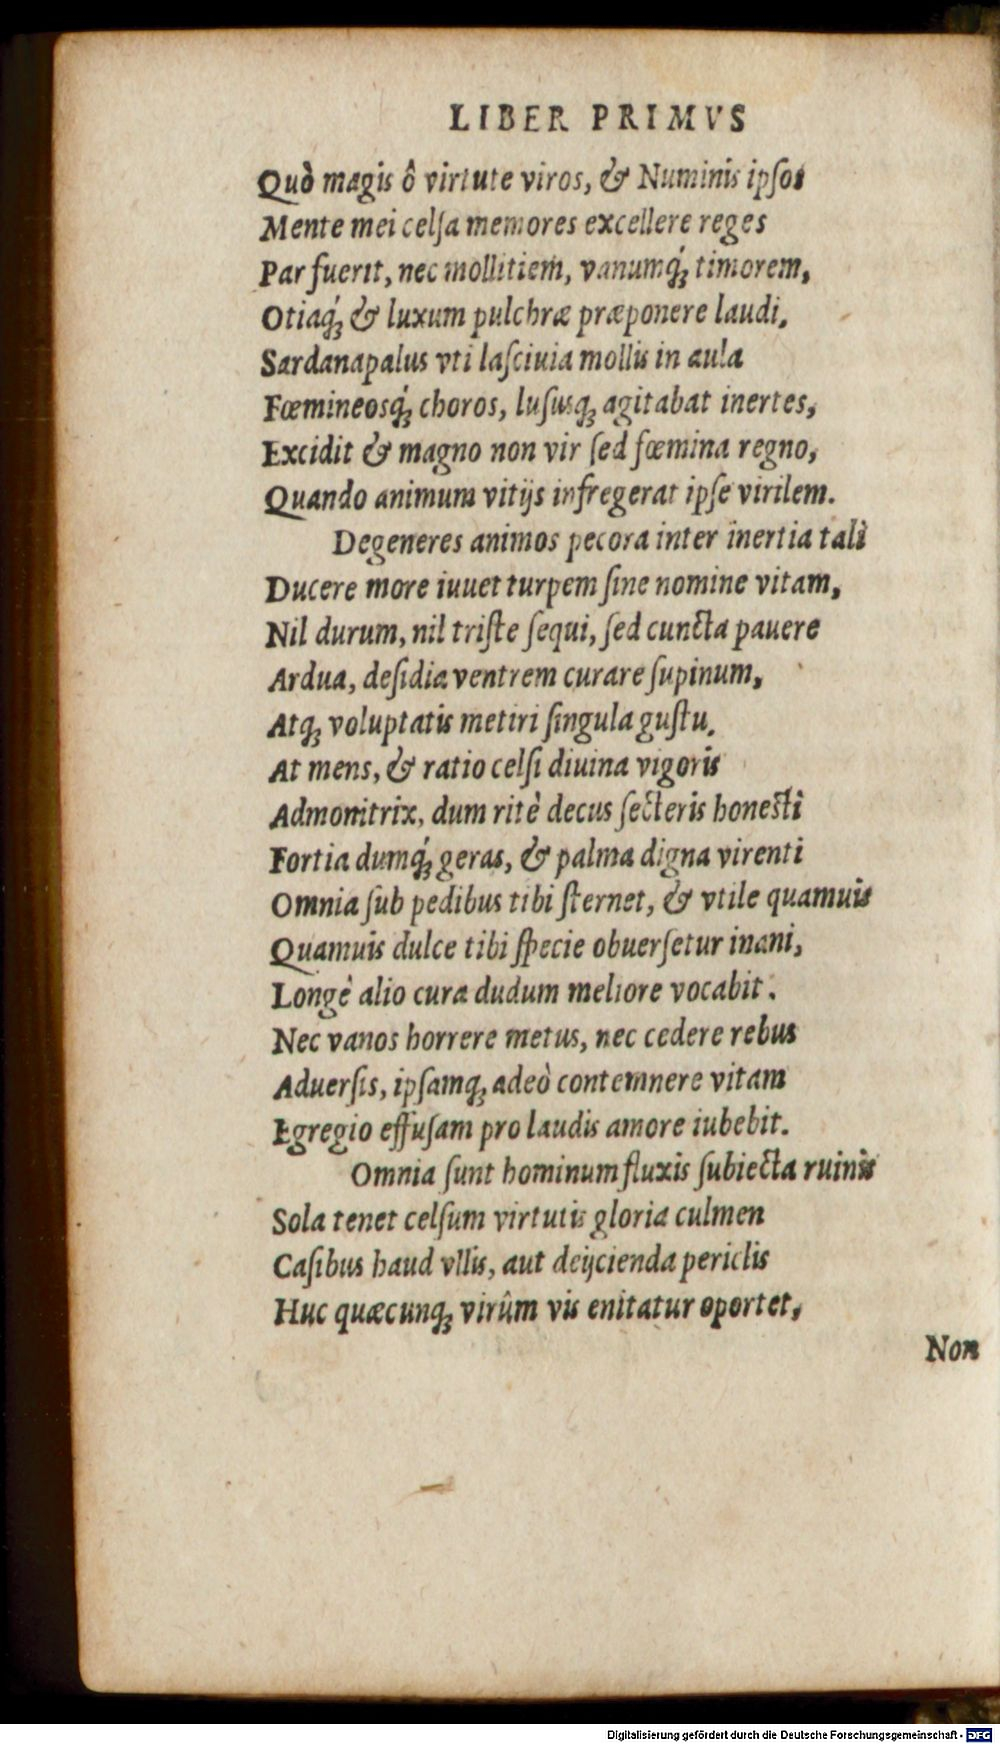 LIBER PRIMVS
Quò magis ô virtute viros, & Numinis ipſos
Mente mei celſa memores excellere reges
Par fuerit, nec mollitiem, vanumq́; timorem,
Otiaq́; & luxum pulchræ præponere laudi.
Sardanapalus vti laſciuia mollis in aula
Fœmineosq́; choros, luſusq; agitabat inertes,
Excidit & magno non vir ſed fœmina regno,
Quando animum vitijs infregerat ipſe virilem.
Degeneres animos pecora inter inertia tali
Ducere more iuuet turpem ſine nomine vitam,
Nil durum, nil triſte ſequi, ſed cuncta pauere
Ardua, deſidia ventrem curare ſupinum,
Atq; voluptatis metiri ſingula guſtu.
At mens, & ratio celſi diuina vigoris
Admonitrix, dum ritè decus ſecteris honesti
Fortia dumq́; geras, & palma digna virenti
Omnia ſub pedibus tibi ſternet, & vtile quamuis
Quamuis dulce tibi ſpecie obuerſetur inani,
Longè alio cura dudum meliore vocabit.
Nec vanos horrere metus, nec cedere rebus
Aduerſis, ipſamq; adeò contemnere vitam
Egregio effuſam pro laudis amore iubebit.
Omnia ſunt hominum fluxis ſubiecta ruinis
Sola tenet celſum virtutis gloria culmen
Caſibus haud vllis, aut deijcienda periclis
Huc quæcunq; virûm vis enitatur oportet,
Non
Digitalisierung gefördert durch die Deutsche Forschungsgemeinschaft - DFG